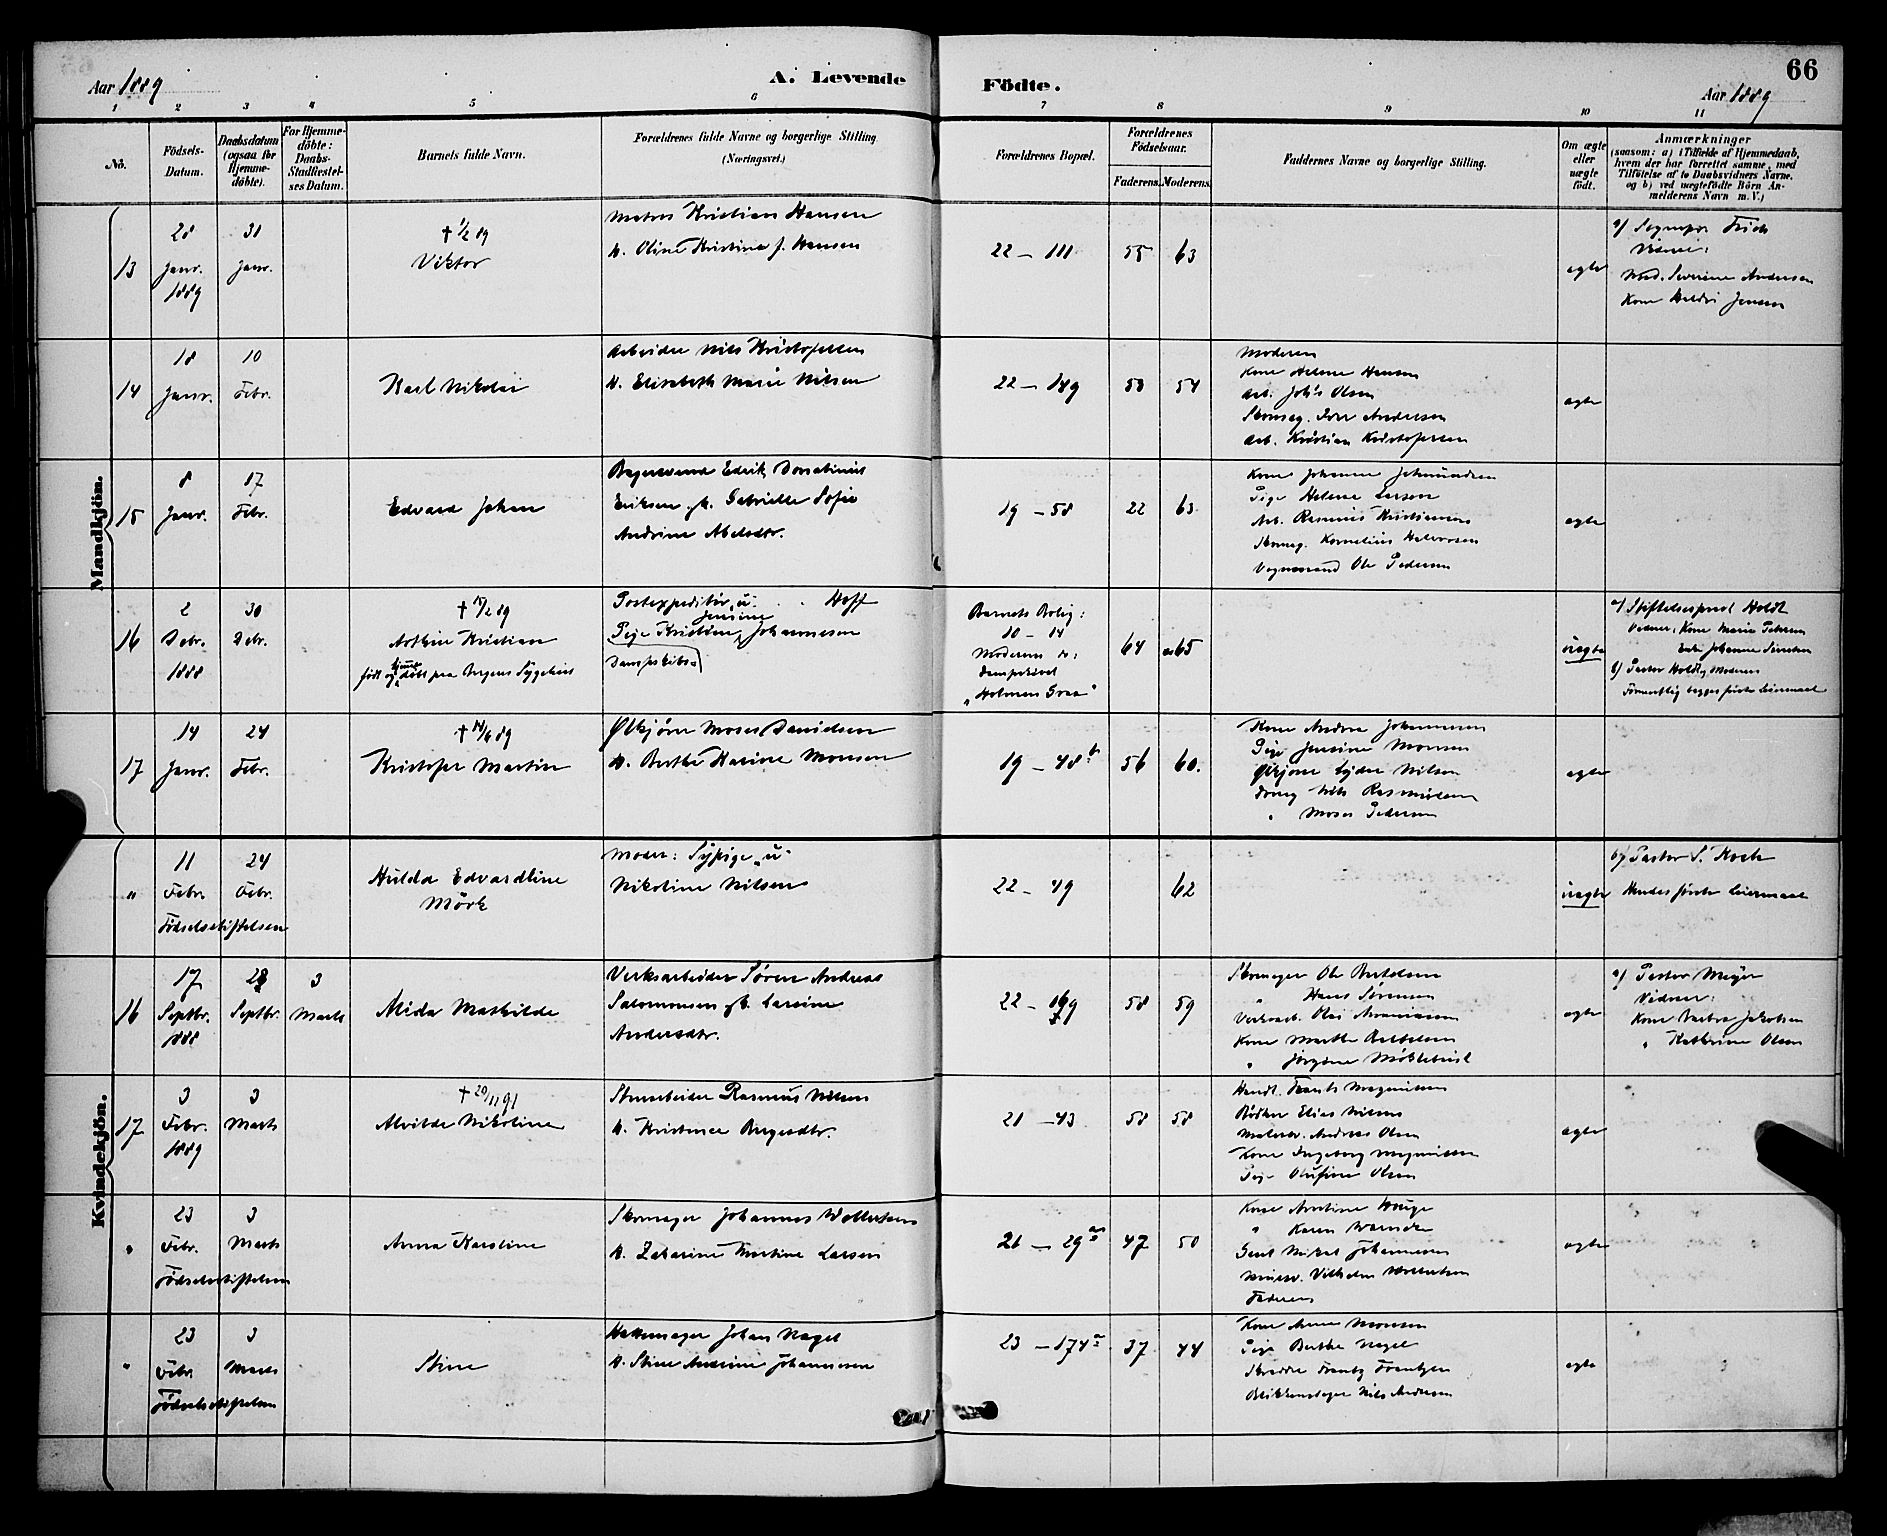 Aar 1889
A. Levende
Födte.
66
Aar 1889
1 2 3 4 5 6 7 8 9 10 11
No.
Födsels-
Datum.
Daabsdatum
(ogsaa for
Hjemme-
döbte).
For Hjemme-
döbte:
Daabs-
Stadfæstel-
ses Datum.
Barnets fulde Navn.
Forældrenes fulde Navne og borgerlige Stilling
(Næringsvei.)
Forældrenes Bopæl.
Forældrenes
Födselsaar.
Faderens. Moderens.
Faddernes Navne og borgerlige Stilling.
Om ægte
eller
uægte
födt.
Anmærkninger
(saasom: a) i Tilfælde af Hjemmedaab,
hvem der har forrettet samme, med
Tilföielse af to Daabsvidners Navne.
og b) ved uægtefödte Börn An-
melderens Navn m.V.)
Mandkjön.
13
28
Janr.
1889
31
Janr.
† 1/2 89
Viktor
Matros Kristian Hansen
H. Oline Kristine f. Hansen
22 - 111
55
63
ægte
a) Sognepr. Frich
Madm. Severine Andersen
Kone Jensen
14
18
Janr.
10
Febr.
Karl Nikolai
Arbeider Nils Kristofersen
H. Elisabeth Marie Nilsen
22 - 149
53
54
Moderen
Kone Helene Hansen
Arb. Johs Olsen
Skomag. Iver Andersen
Arb. Kristian Kristofersen
ægte
15
8
Janr.
17
Febr.
Edvard Johan
Bagersvend Edvik Donatinius
Eriksen og H. Gabrielle Sofie
Andrine Abelsdtr.
19 - 58
22
63
Kone Johanne
Pige Helene Larsen
Arb. Rasmus Kristiansen
Skomag. Kornelius Halvorsen
Vognmand Ole Pedersen
ægte
16
2
Debr.
1888
30
Debr.
† 15/2 89
Arthur Kristian
født og hjemmedøbt paa Bergens Sygehuus
Postexpeditør, u. . . Hoff
Pige Kristine Jensine Johannesen
Dampskibs-
Barnets Bolig:
10 - 14
Moderens do:
Dampskibet
„Holmen Graa"
64
65
uægte
a) Stiftelsesprest Holdt
Vidner: Kone Marie Petersen
Enke Johanne
b) Pastor Holdt, Moderen
Formentlig begges første Leiermaal
17
14
Janr.
24
Febr.
† 14/6 89
Kristofer Martin
Ølkjører Moses Danielsen
H. Berthe Karine Monsen
19 - 48 b
56
60.
Kone Andrea Johannesen
Pige Jensine Monsen
Ølkjører Lyder Nilsen
Dreng Nils Rasmussen
" Moses Pedersen
ægte
Kvindekjön.
"
11
Febr.
Fødselsstiftelsen
24
Febr.
Hulda Edvardline
Mörk
Moder: Sypige „u"
Nikoline Nilsen
22 - 49
62
uægte
b) Pastor S. Koch
Hendes første Leiermaal
16
17
Septbr.
1888
28
Septbr.
3
Marts
Alida Mathilde
Verksarbeider Søren Andreas
Salomonsen og H. Larsine
Andersdtr.
22 - 169
58
59
Skomager Ole Bertelsen
" Hans Sørensen
Verksarb. Olai
Kone Marthe Bertelsen
" Jørgine Møklebust
ægte
a) Pastor Meyer
Vidner:
Kone Barbra Jakobsen
" Kathrine Olsen
17
3
Febr.
1889
3
Marts
† 20/11 91
Alvilde Nikoline
Stenarbeider Rasmus Nilsen
H. Kristence Birgesdtr.
21 - 43
58
58
Handl. Frants Magnussen
Bødker Elias Nilsen
Malersv. Andreas Olsen
Kone Ingeborg Magnussen
Pige Olufine Olsen
ægte
"
23
Febr.
Fødselsstiftelsen
3
Marts
Anna Karoline
Skomager Johannes Wollertsen
H. Zakarine Martine Larsen
21 - 29
47
50
Kone Hauge
" Karen Warncke
Gart. Mikal Johannesen
Vilhelm Wollertsen
Faderen
ægte
"
23
Febr.
Fødselsstiftelsen
3
Marts
Stine
Hattemager Johan Nagel
H. Stine Andrine Johannesen
23 - 174 a
37
44
Kone Anne Monsen
Pige Berthe Nagel
Skrædder Frantz Frantzen
Blikkenslager Nils Andersen
ægte